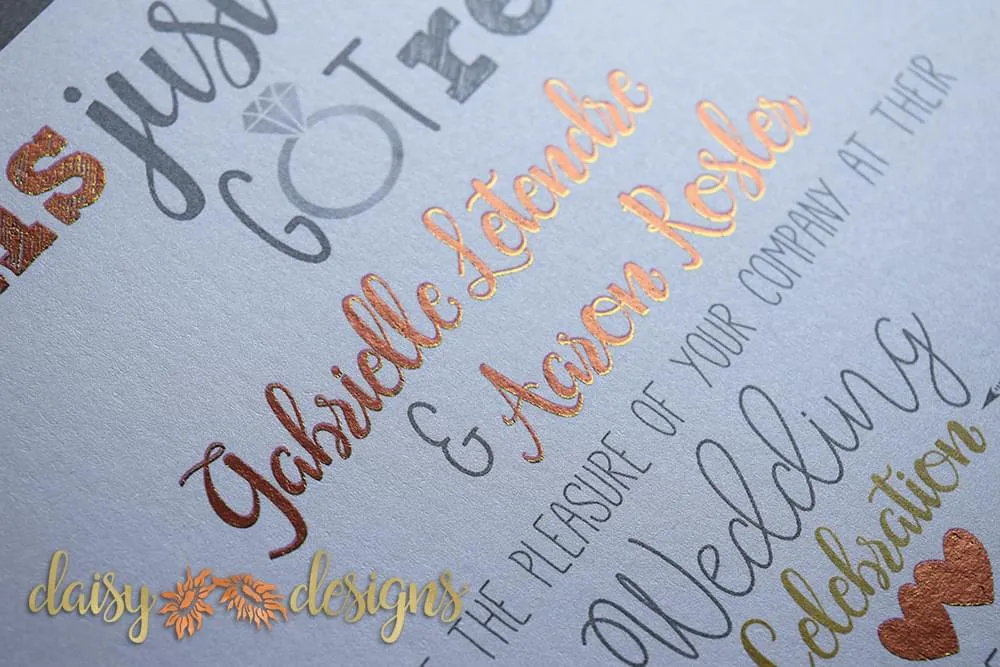 just
GOT
Gabrielle Letendre
& Aaron Rosler
THE PLEASURE OF YOUR COMPANY AT THEIR
Wedding
Celebration
daisy designs